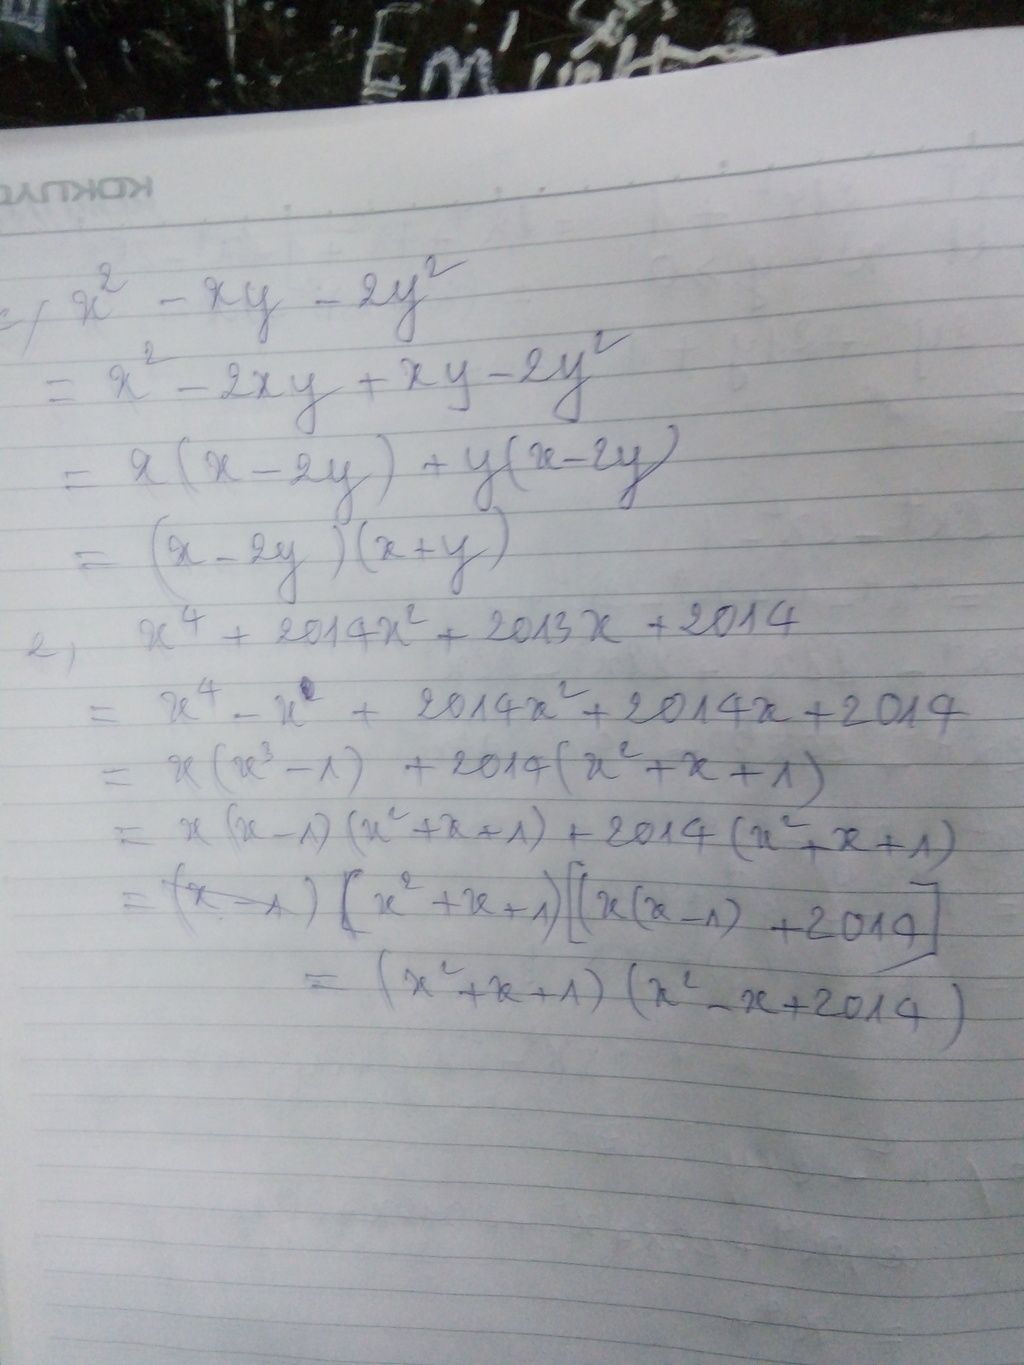 x² - xy - 2y²
= x² - 2xy + xy - 2y²
= x(x - 2y) + y(x - 2y)
= (x - 2y)(x + y)
2, x⁴ + 2014x² + 2013x + 2014
= x⁴ - x + 2014x² + 2014x + 2014
= x(x³ - 1) + 2014(x² + x + 1)
= x(x - 1)(x² + x + 1) + 2014(x² + x + 1)
= (x - 1) (x² + x + 1)[(x(x - 1) + 2014]
= (x² + x + 1)(x² - x + 2014)